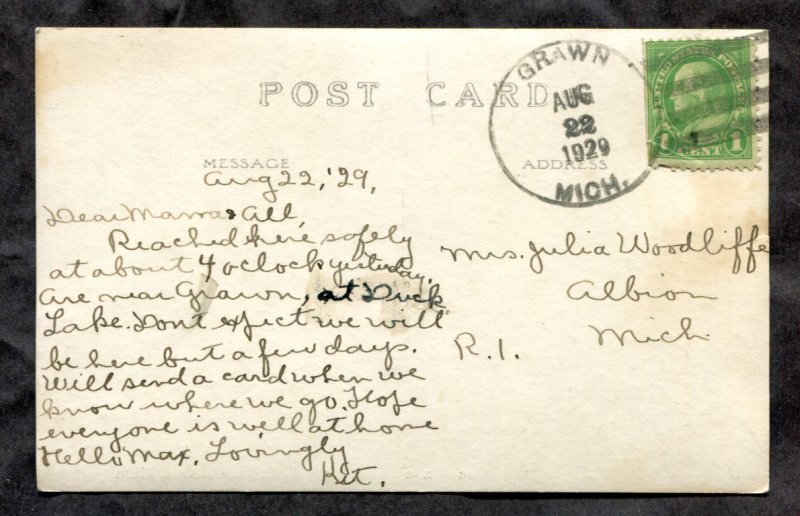 POST CARD
MESSAGE
ADDRESS
GRAWN
AUG
22
1929
MICH.
UNITED STATES POSTAGE
1 CENT 1
Aug 22, '29,
Dear Mama & All,
Reached here safely
at about 4 oclock yesterday.
Are near Grawn, at Duck
Lake. Dont expect we will
be here but a few days.
Will send a card when we
know where we go. Hope
everyone is well at home
Hello Max. Lovingly
Het.
Mrs. Julia Woodliffe
Albion
Mich
R. 1.